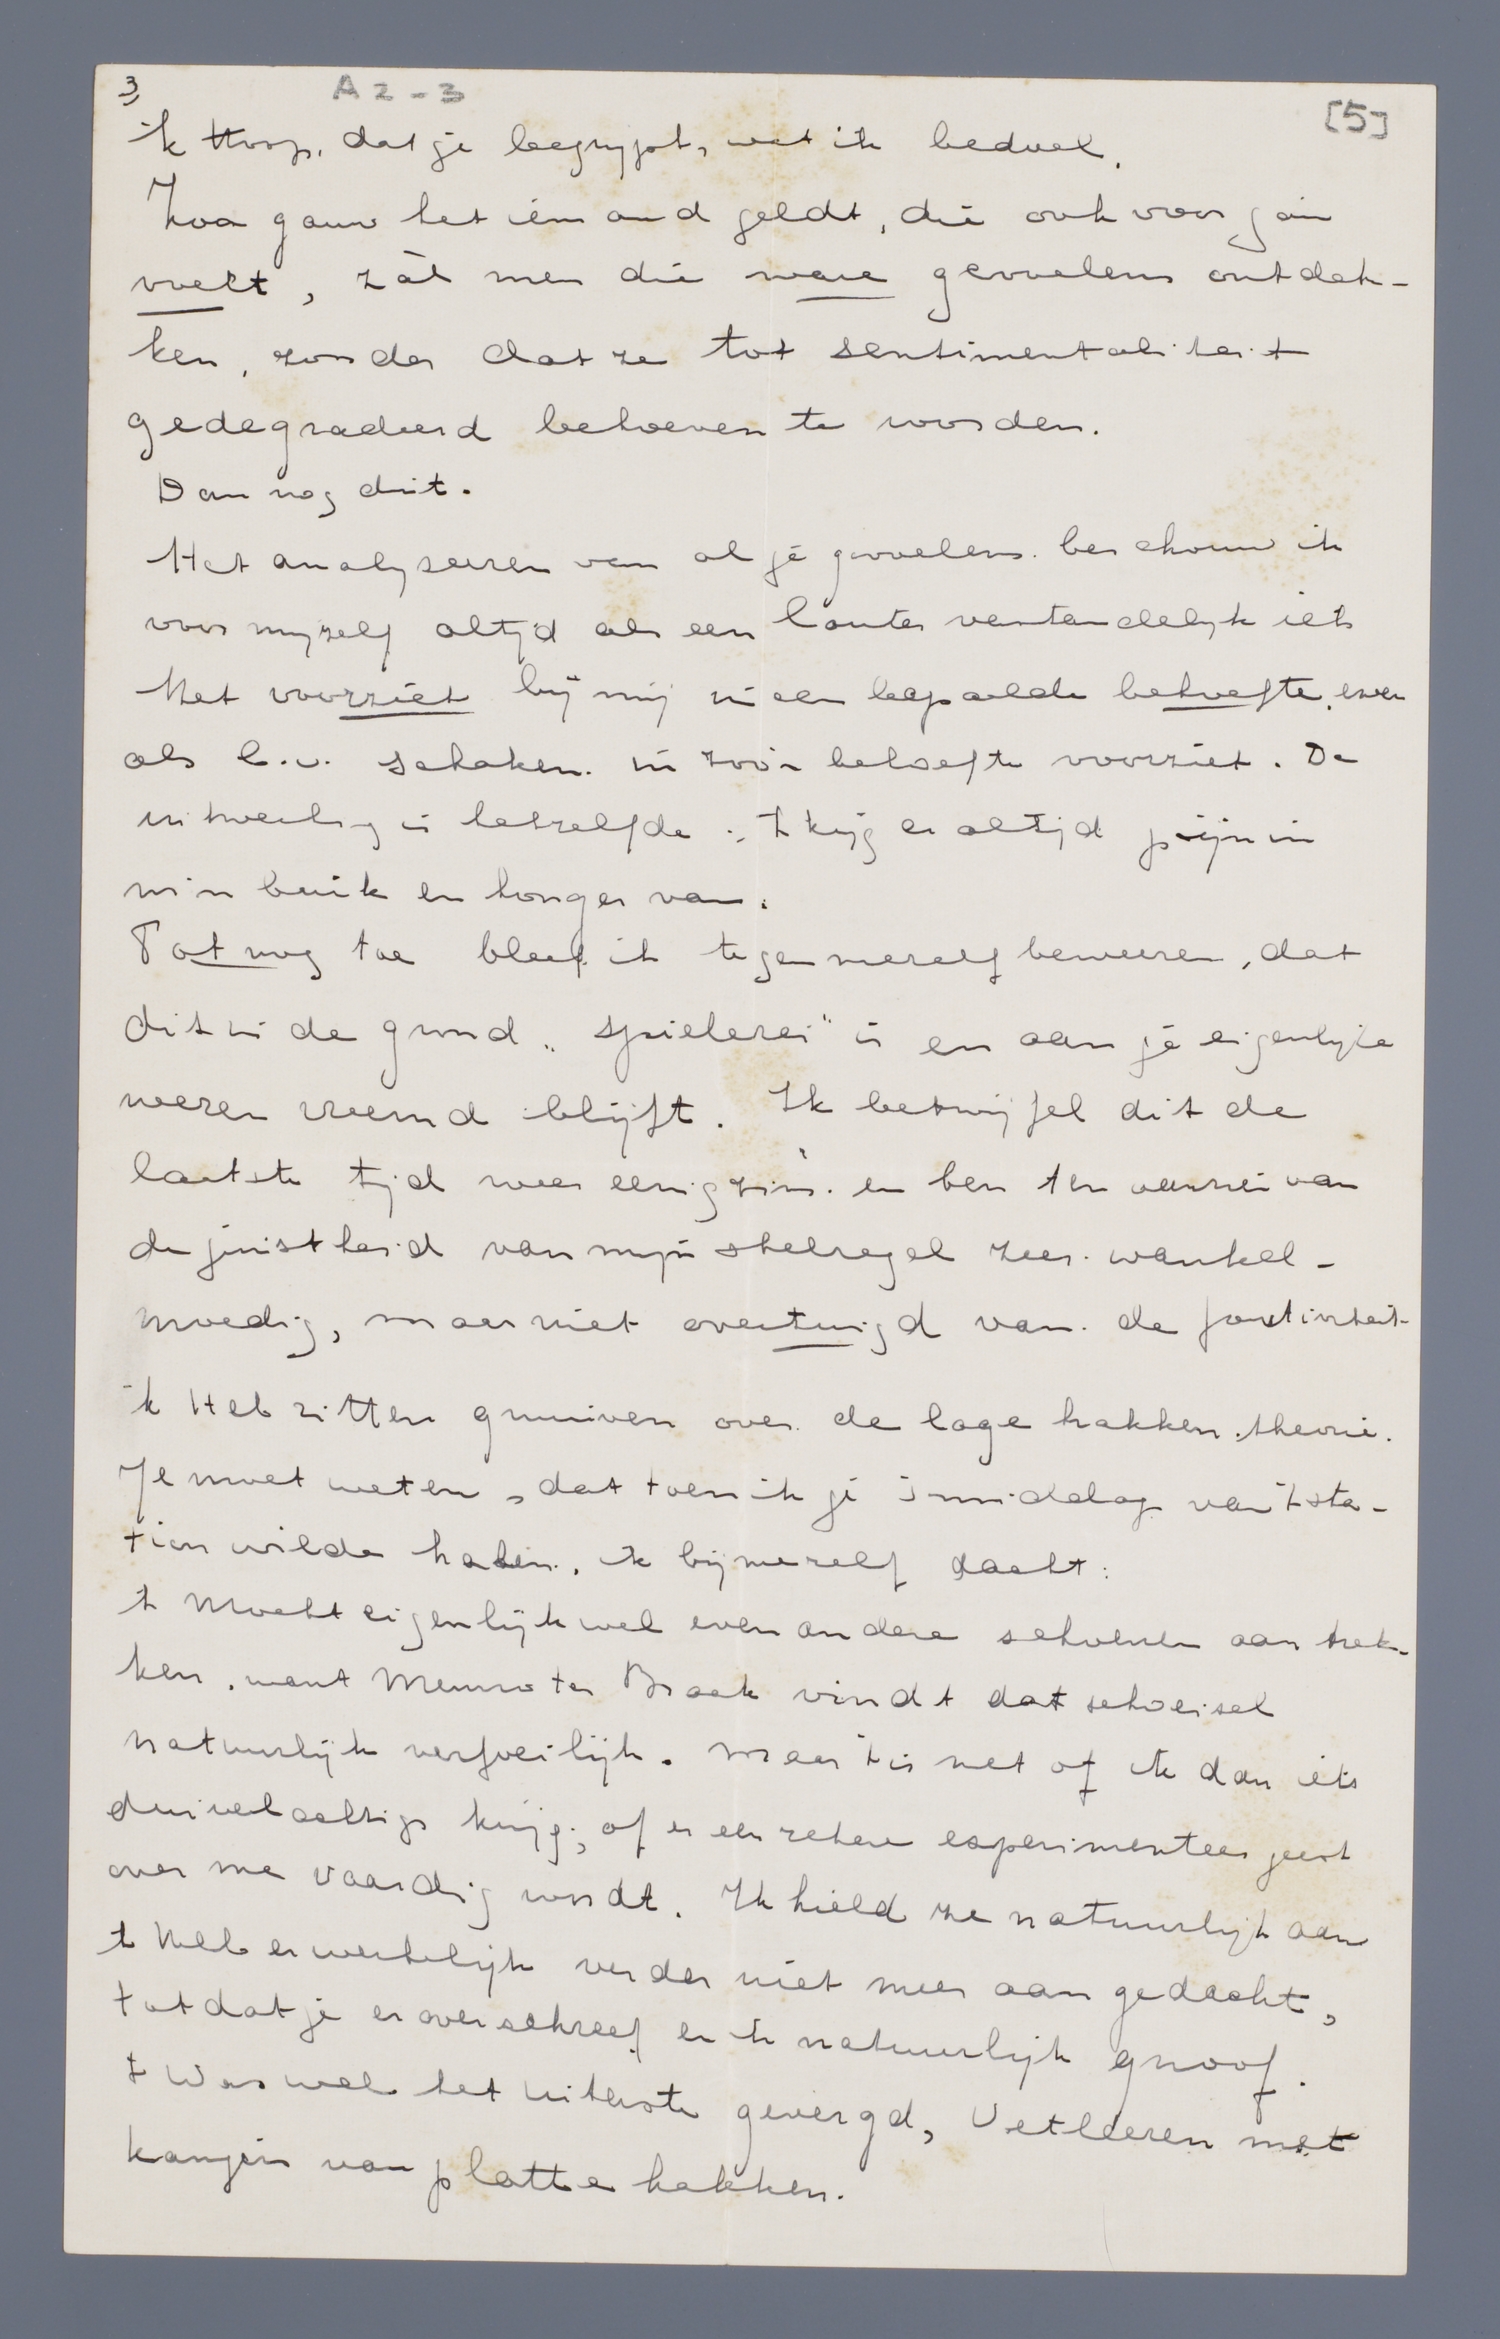 3)
A 2 - 3
[5]
ik Hoop, dat je begrijpt, wat ik bedoel.
Zoo gauw het iemand geldt, die ook voor jou
voelt, zàl men die ware gevoelens ontdek-
ken, zonder dat ze tot sentimentaliteit
gedegradeerd behoeven te worden.
Dan nog dit.
Het analyseeren van al je gevoelens beschouw ik
voor mijzelf altijd als een louter verstandelijk iets
Het voorziet bij mij in een bepaalde behoefte, even
als b.v. schaken in zoo'n behoefte voorziet. De
uitwerking is hetzelfde: 'k krijg er altijd pijn in
m'n buik en honger van.
Tot nog toe bleef ik tegen mezelf beweeren, dat
dit in de grond „spielerei" is en aan je eigenlijke
wezen vreemd blijft. Ik betwijfel dit de
laatste tijd weer eenigzins en ben ten aanzien van
de juistheid van mijn stelregel zeer wankel-
moedig, maar niet overtuigd van de foutiviteit
ik Heb zitten gnuiven over de lage hakken theorie.
Je moet weten, dat toen ik je 's middags van 't sta-
tion wilde halen, ik bij mezelf dacht:
'k Mocht eigenlijk wel even andere schoenen aantrek-
ken, want Menno ter Braak vindt dat schoeisel
natuurlijk verfoeilijk. Maar 't is net of ik dan iets
duivelachtigs krijg, of er een zekere experimenteer geest
over me vaardig wordt. Ik hield ze natuurlijk aan
'k Heb er werkelijk verder niet meer aan gedacht,
totdat je er over schreef en ik natuurlijk gnoof.
't Was wel het uiterste gevergd, Vetleeren met
kanjers van platte hakken.